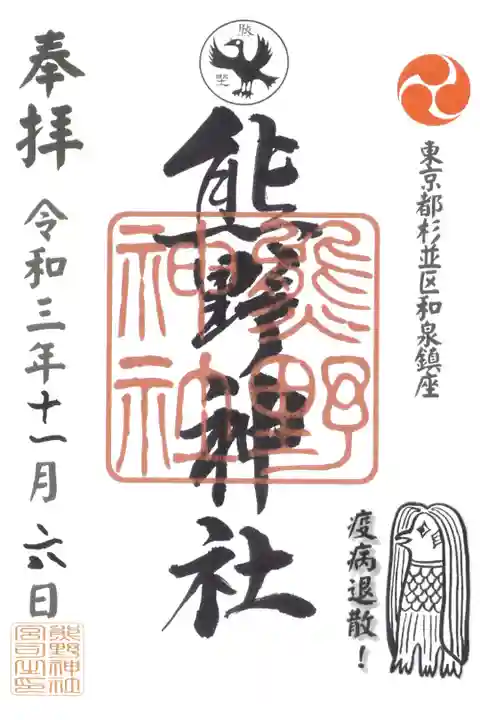 東京都杉並区和泉鎮座
疫病退散!
熊野
熊野神社
熊野神社
奉拝
令和三年十一月六日
熊野神社宮司之印